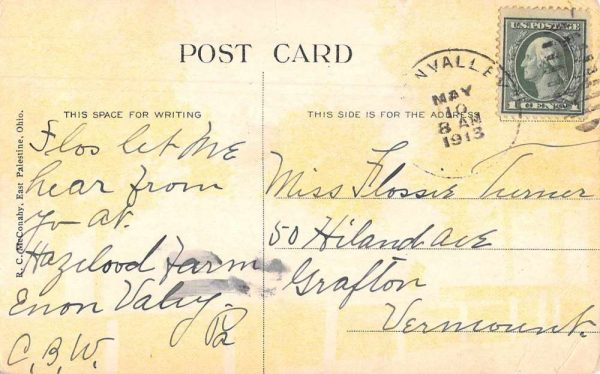 POST CARD
U.S. POSTAGE
NVALLEY
MAY
10
8 AM
1913
THIS SPACE FOR WRITING
THIS SIDE IS FOR THE ADDRESS
Flos let me
hear from
yo at.
Hazelood Farm
Enon Valey.
Pa
C.B.W.
Miss Flossie Turner
50 Hiland Ave
Grafton
Vermount.
R. C. McConahy, East Palestine, Ohio.